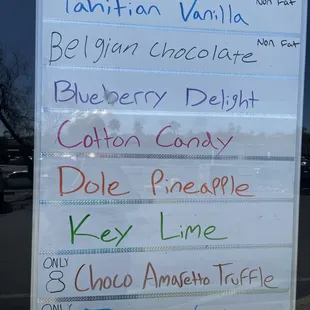 Tahitian Vanilla Non Fat
Belgian Chocolate Non Fat
Blueberry Delight
Cotton Candy
Dole Pineapple
Key Lime
ONLY
8 Choco Amaretto Truffle
ONLY